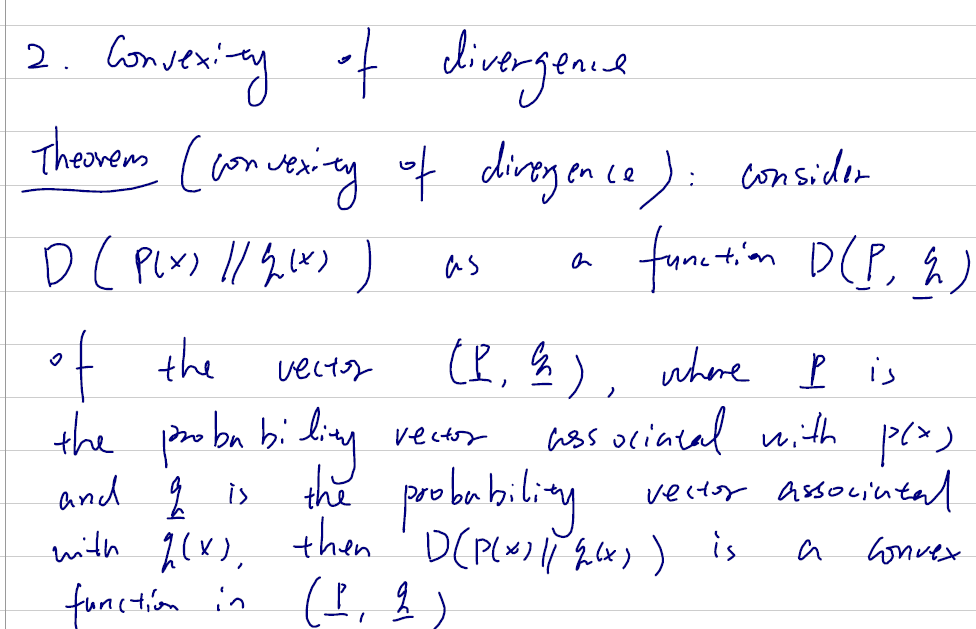 2. Convexity of divergence
Theorem (convexity of divergence): consider
D(P(x)//q(x)) as a function D(P, q)
of the vector (P, q), where P is
the probability vector associated with p(x)
and q is the probability vector associated
with q(x), then D(P(x)//q(x)) is a convex
function in (P, q)